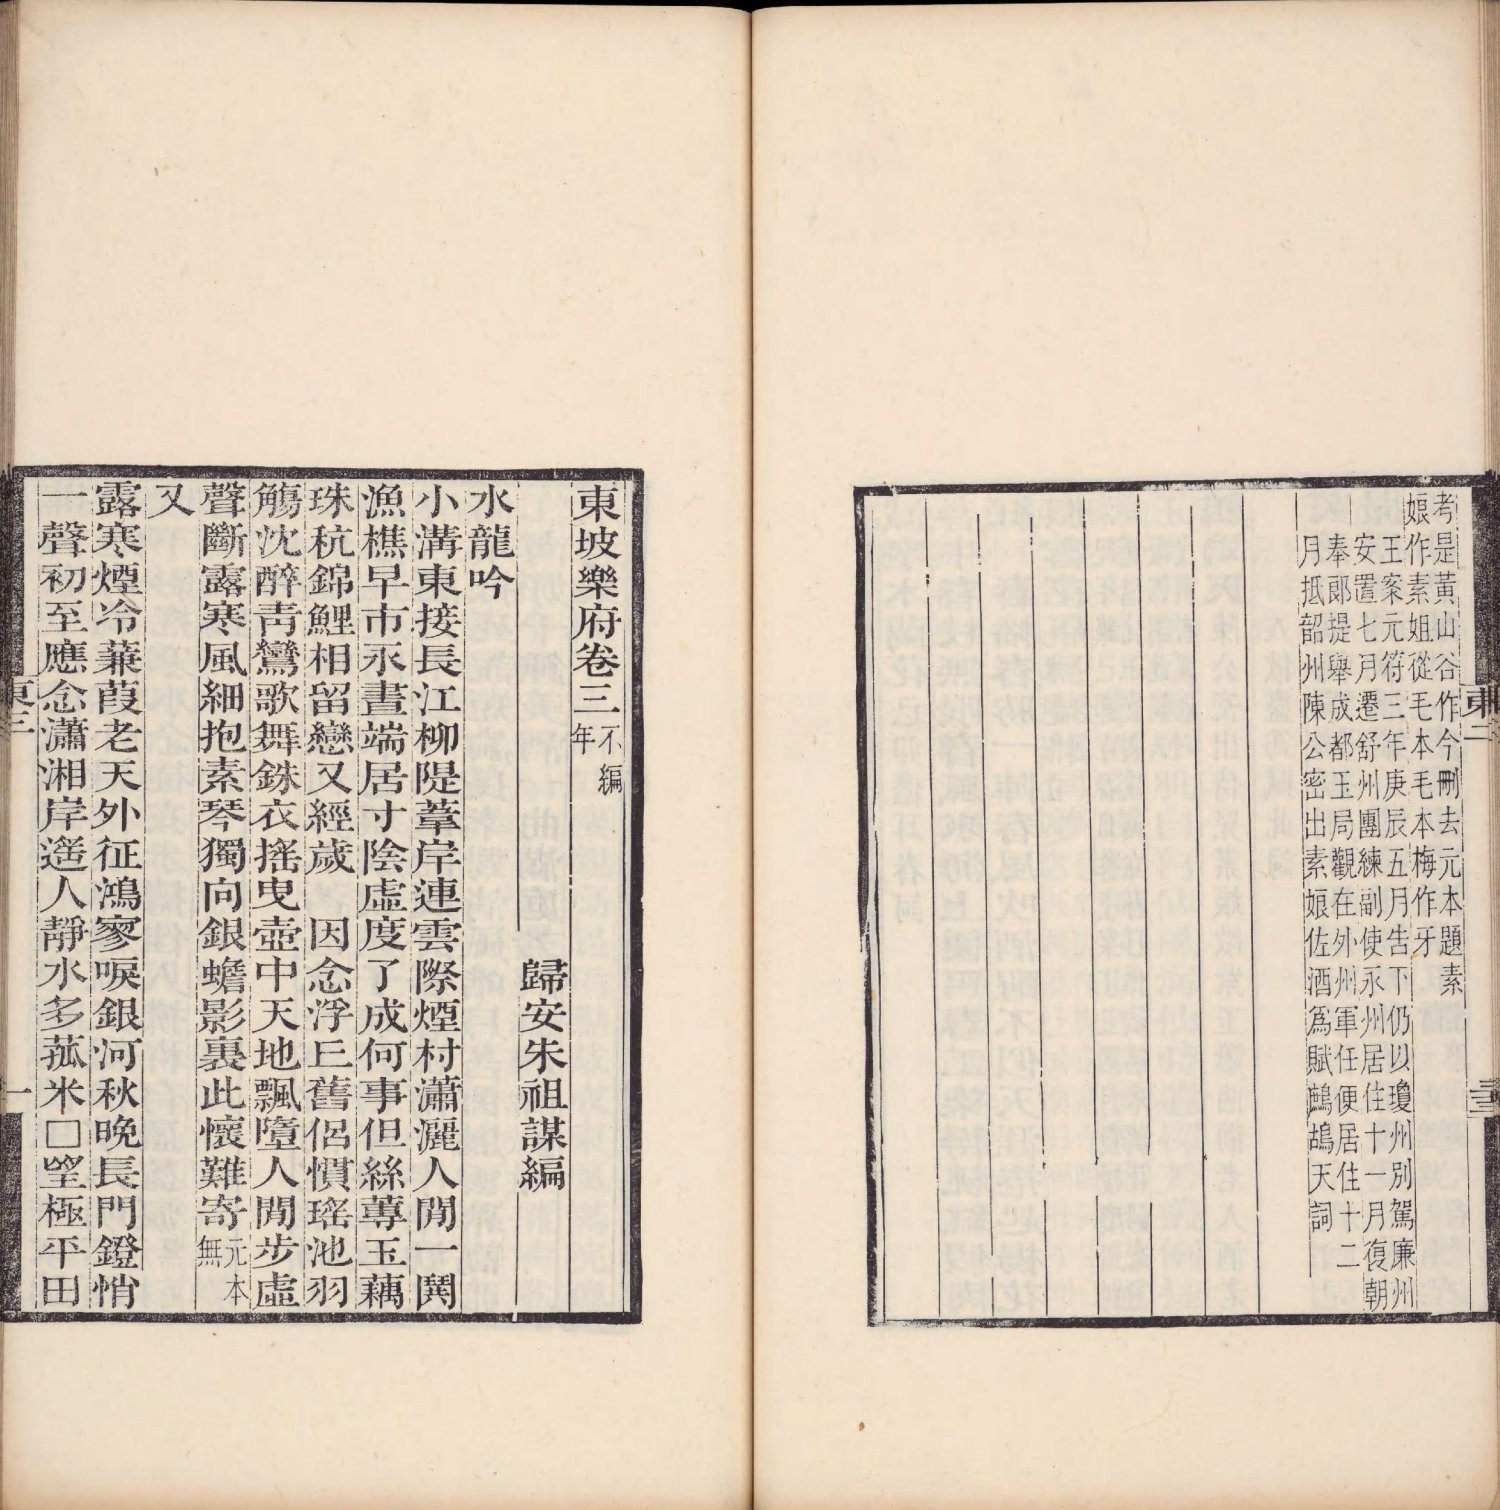 考是黃山谷作今刪去元本題素
娘作素姐從毛本毛本梅作牙
王案元符三年庚辰五月告下仍以瓊州別駕廉州
安置七月遷舒州團練副使永州居住十一月復朝
奉郎提舉成都玉局觀在外州軍任便居住十二
月抵韶州陳公密出素娘佐酒爲賦鷓鴣天詞
東二
東坡樂府卷三不編年
歸安朱祖謀編
水龍吟
小溝東接長江柳隄葦岸連雲際煙村瀟灑人閒一鬨
漁樵早市永晝端居寸陰虛度了成何事但絲蓴玉藕
珠秔錦鯉相留戀又經歲 因念浮丘舊侶慣瑤池羽
觴沈醉青鸞歌舞銖衣搖曳壺中天地飄墮人閒步虛
聲斷露寒風細抱素琴獨向銀蟾影裏此懷難寄元本無
又
露寒煙冷蒹葭老天外征鴻寥唳銀河秋晚長門鐙悄
一聲初至應念瀟湘岸遙人靜水多菰米□望極平田
東三
一